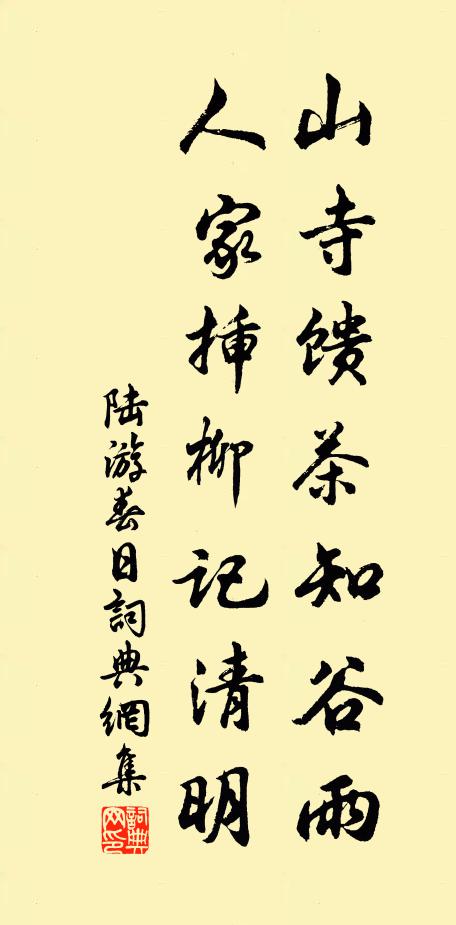 山寺馈茶知谷雨
人家揷柳记清明
陆游春日詞典網集
詞典网印